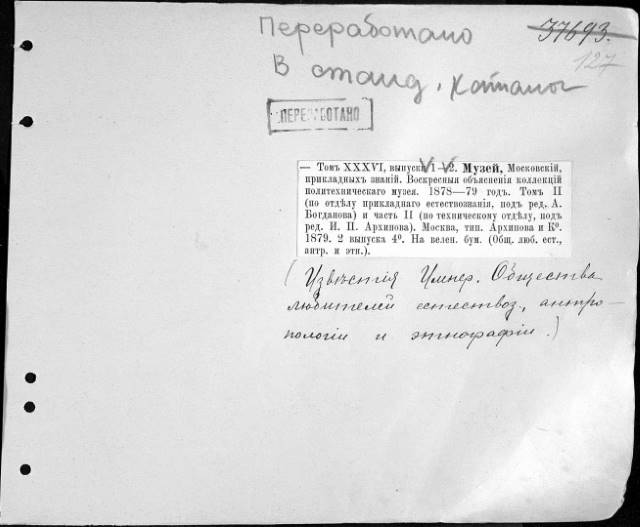 Переработано
37693.
127
В станд. каталог
ПЕРЕРАБОТАНО
— Томъ XXXVI, выпуски 1—2. Музей, Московскій,
прикладныхъ знаній. Воскресныя объясненія коллекцій
политехническаго музея. 1878—79 годъ. Томъ II
(по отдѣлу прикладнаго естествознанія, подъ ред. А.
Богданова) и часть II (по техническому отдѣлу, подъ
ред. И. П. Архипова). Москва, тип. Архипова и Ко.
1879. 2 выпуска 4º. На велен. бум. (Общ. люб. ест.,
антр. и этн.).
(Извѣстія Импер. Общества
любителей естествоз., антро-
пологіи и этнографіи.)